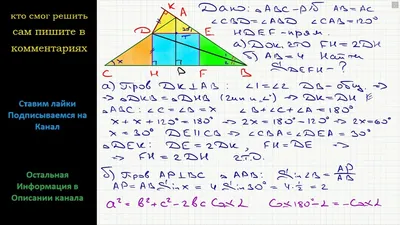 кто смог решить
сам пишите в
комментариях
Ставим лайки
Подписываемся на
Канал
Остальная
Информация в
Описании канала
K
A
D
T
E
C
H
P
F
B
Дано: △ABC - р/б AB=AC
∠CBD=∠ABD ∠CAB=120°
HDEF - прям.
а) Док-ть FH=2DH
б) AB=4 Найти
S DEFH - ?
а) Пров DK⊥AB: ∠1=∠2 BD - общ. ⇒
⇒ △DKB=△DHB ⇒ DK=DH
△ABC: ∠C=∠B=x ∠B+∠C+∠A=180°
x+x+120°=180° ⇒ 2x=180°-120° ⇒ 2x=60°
x=30° DE∥CB ⇒ ∠CBA=∠DEA=30°
△DEK: DE=2DK, FH=DE ⇒
⇒ FH=2DH
б) Пров AP⊥BC △APB: Sin∠B=AP/AB
AP=AB Sin x=4 Sin 30°=4·1/2=2
a²=b²+c²-2bc Cos∠ Cos180°-∠=-Cos∠